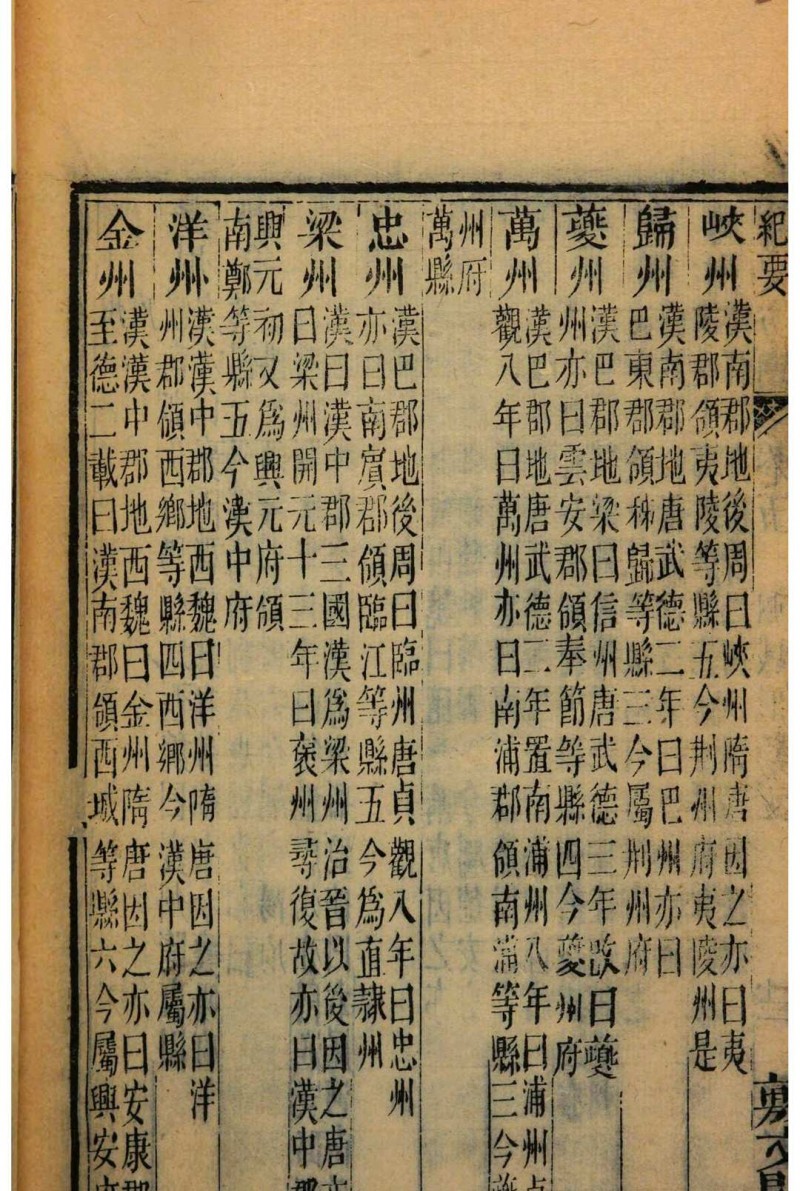 紀要
峽州
漢南郡地後周曰峽州隋唐因之亦曰夷
陵郡領夷陵等縣五今荆州府夷陵州是
歸州
漢南郡地唐武德二年曰巴州亦曰
巴東郡領秭歸等縣三今屬荆州府
夔州
漢巴郡地梁曰信州唐武德三年改曰夔
州亦曰雲安郡領奉節等縣四今夔州府
萬州
漢巴郡地唐武德二年置南浦州八年曰浦州貞
觀八年曰萬州亦曰南浦郡領南浦等縣三今夔
州府
萬縣
忠州
漢巴郡地後周曰臨州唐貞觀八年曰忠州
亦曰南賓郡領臨江等縣五今爲直隸州
梁州
漢曰漢中郡三國漢爲梁州治晉以後因之唐亦
曰梁州開元十三年曰褒州尋復故亦曰漢中郡
興元初又爲興元府領
南鄭等縣五今漢中府
洋州
漢漢中郡地西魏曰洋州隋唐因之亦曰洋
州郡領西鄉等縣四西鄉今漢中府屬縣
金州
漢漢中郡地西魏曰金州隋唐因之亦曰安康郡
至德二載曰漢南郡領西城等縣六今屬興安